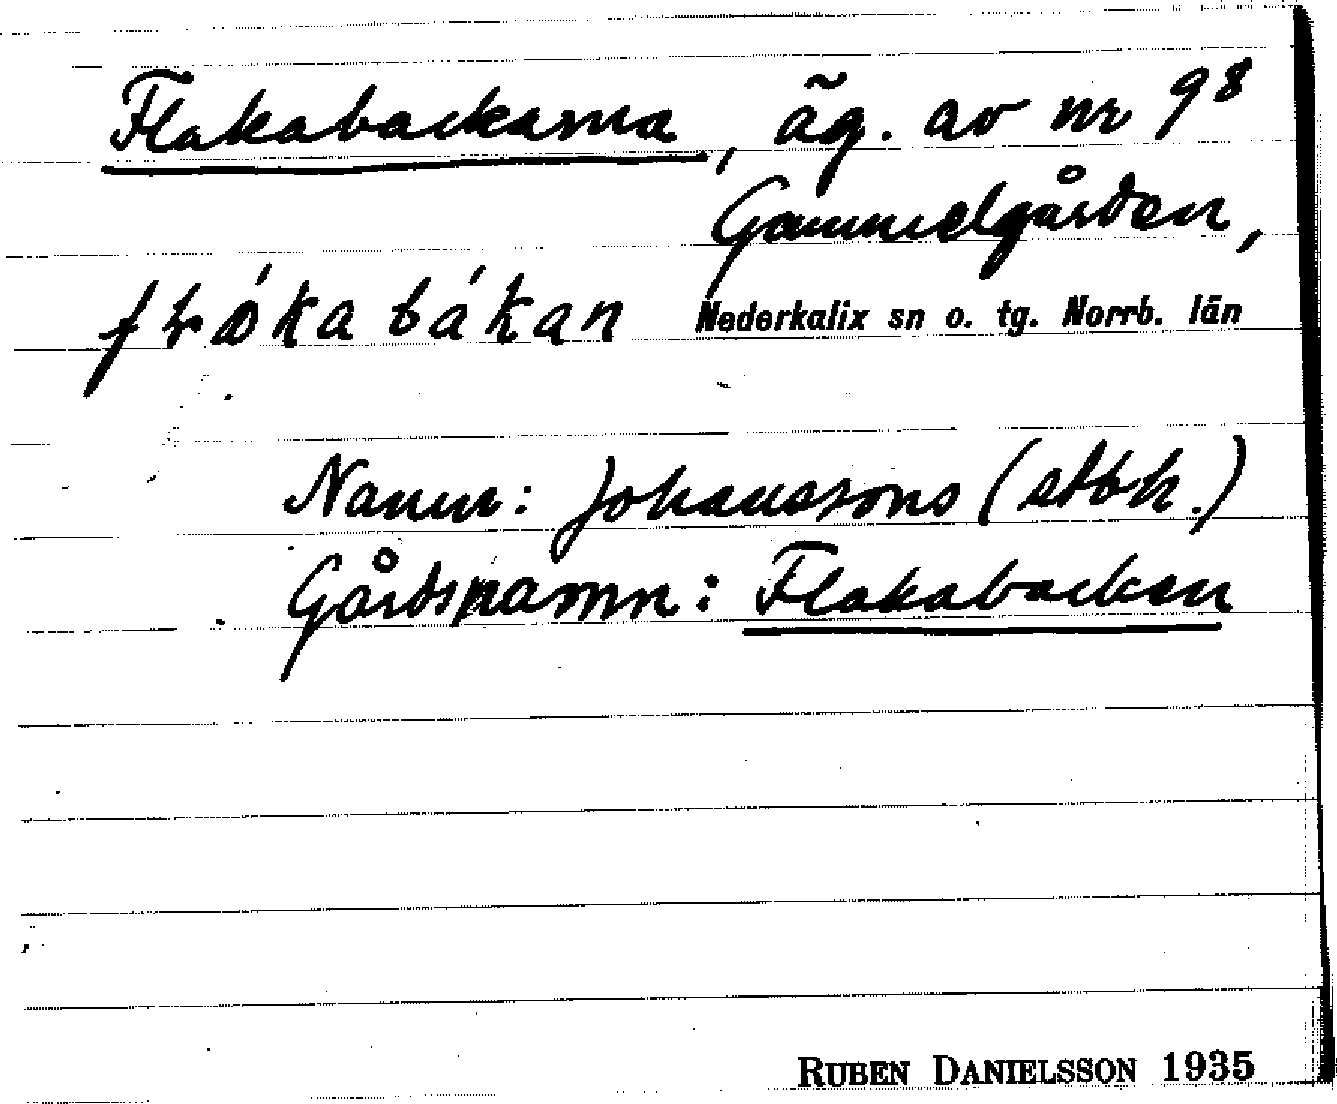 Flakabackarna, äg. av nr 98
Gammelgården,
Nederkalix sn o. tg. Norrb. län
Namn: Johanssons (stbk.)
Gårdsnamn: Flakabacken
RUBEN DANIELSSON 1935